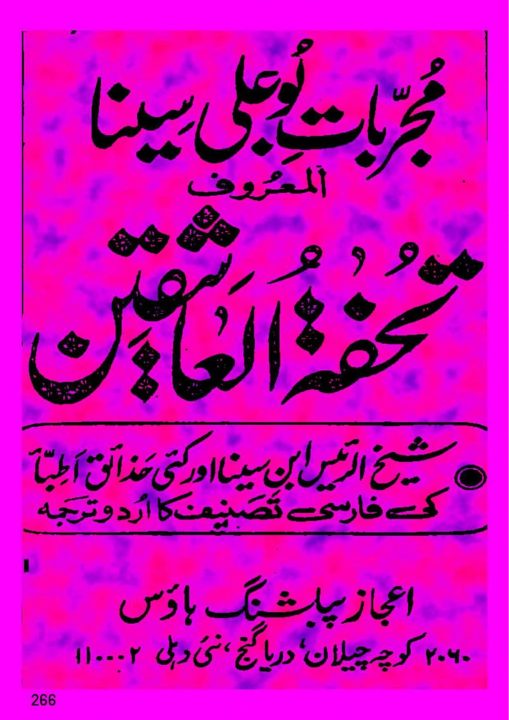 مُجرّباتِ بُو علی سینا
المعرُوف
تُحفۃُ العاشقین
شیخ الرئیس ابنِ سینا اور کئی حَذائق اَطِبّاٗ
کی فارسی تَصنیف کا اُردو ترجمہ
اعجاز پبلشنگ ہاؤس
۲۰۶۰ کوچہ چیلان، دریا گنج، نئی دہلی ۱۱۰۰۰۲
266